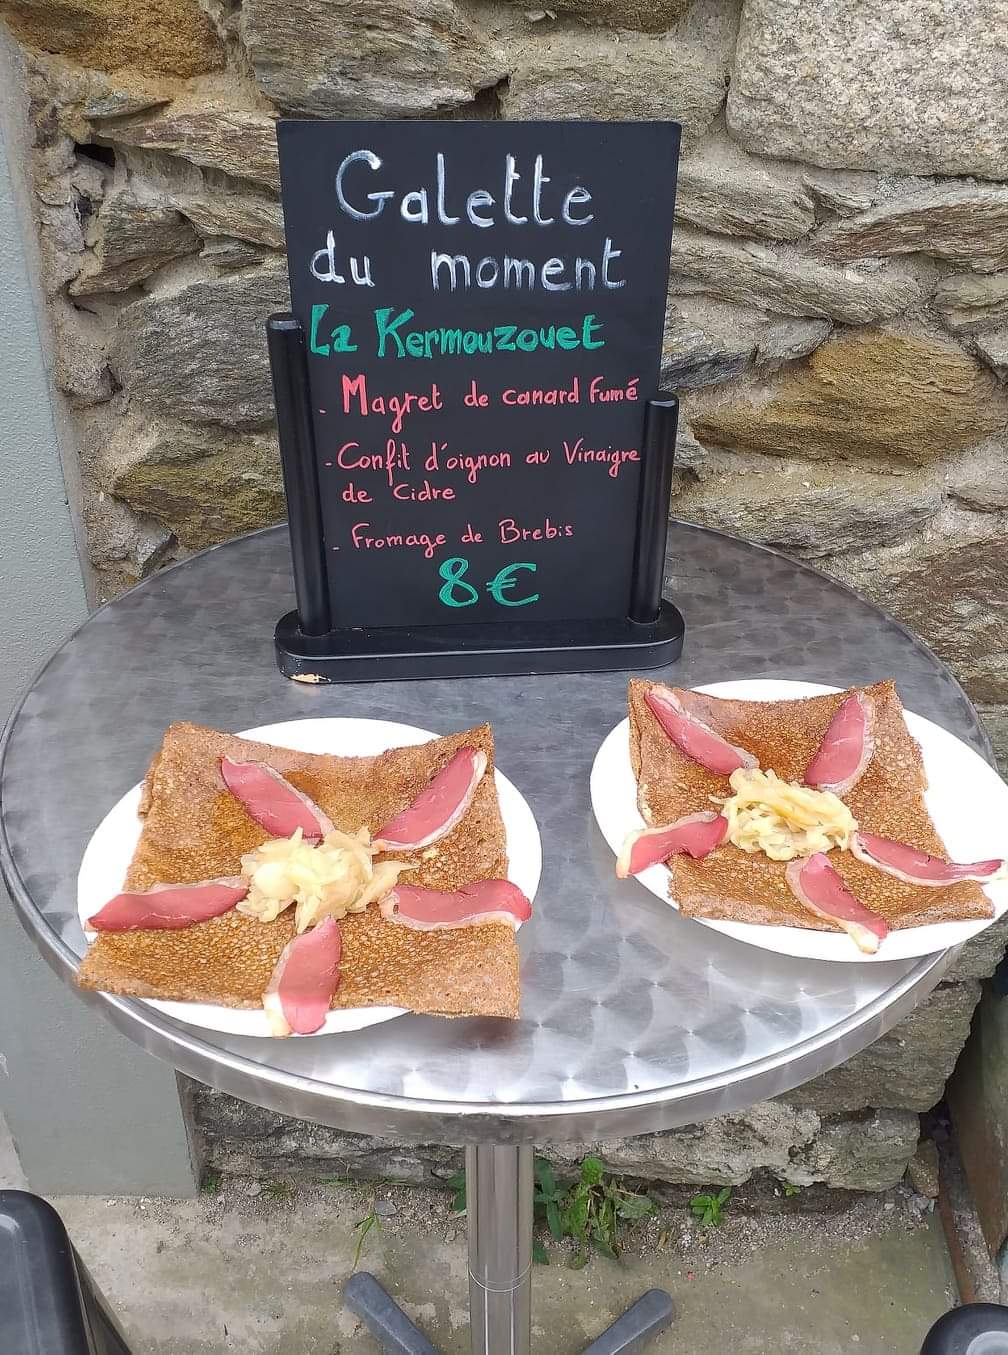 Galette
du moment
La Kermouzouet
- Magret de canard fumé
- Confit d'oignon au Vinaigre
de Cidre
- Fromage de Brebis
8€